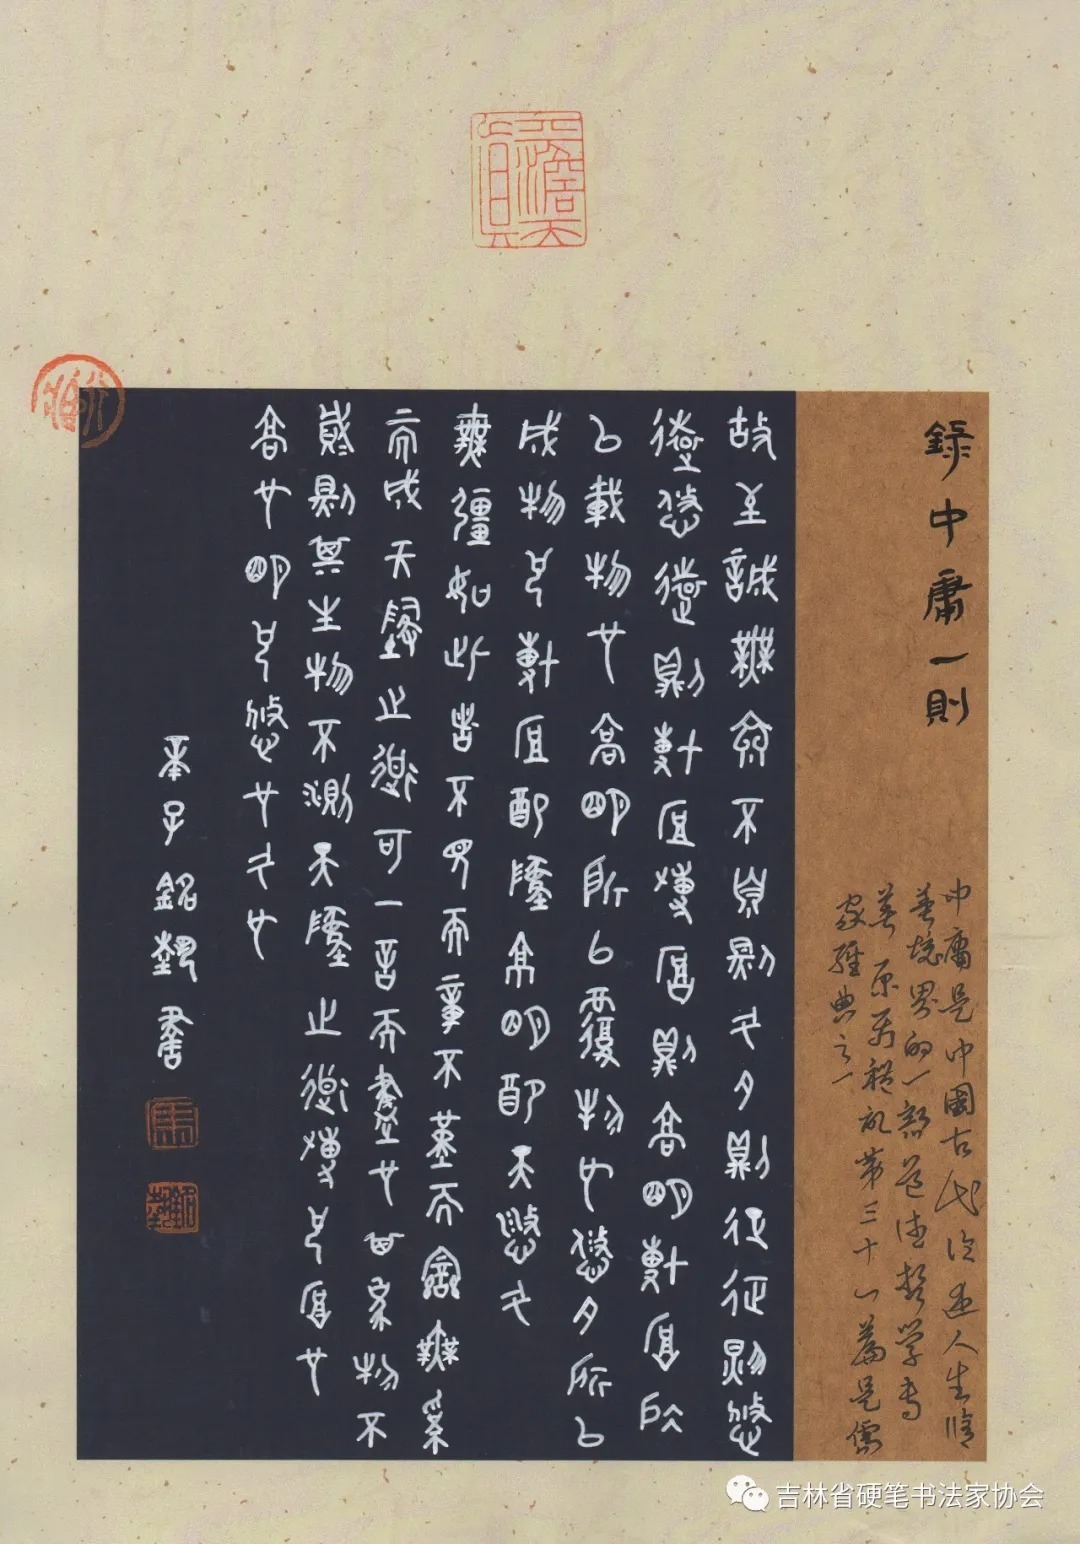 錄中庸一則
中庸是中國古代论述人生修
养境界的一部道德哲学专
著 原系禮記第三十一篇是儒
家經典之一
故至誠無息不息則久久則征征則悠
遠悠遠則博厚博厚則高明博厚所
以載物也高明所以覆物也悠久所以
成物也博厚配地高明配天悠久
無疆如此者不見而章不動而變無為
而成天地之道可一言而盡也其為物不
貳則其生物不測天地之道博也厚也
高也明也悠也久也
銘 書
吉林省硬笔书法家协会